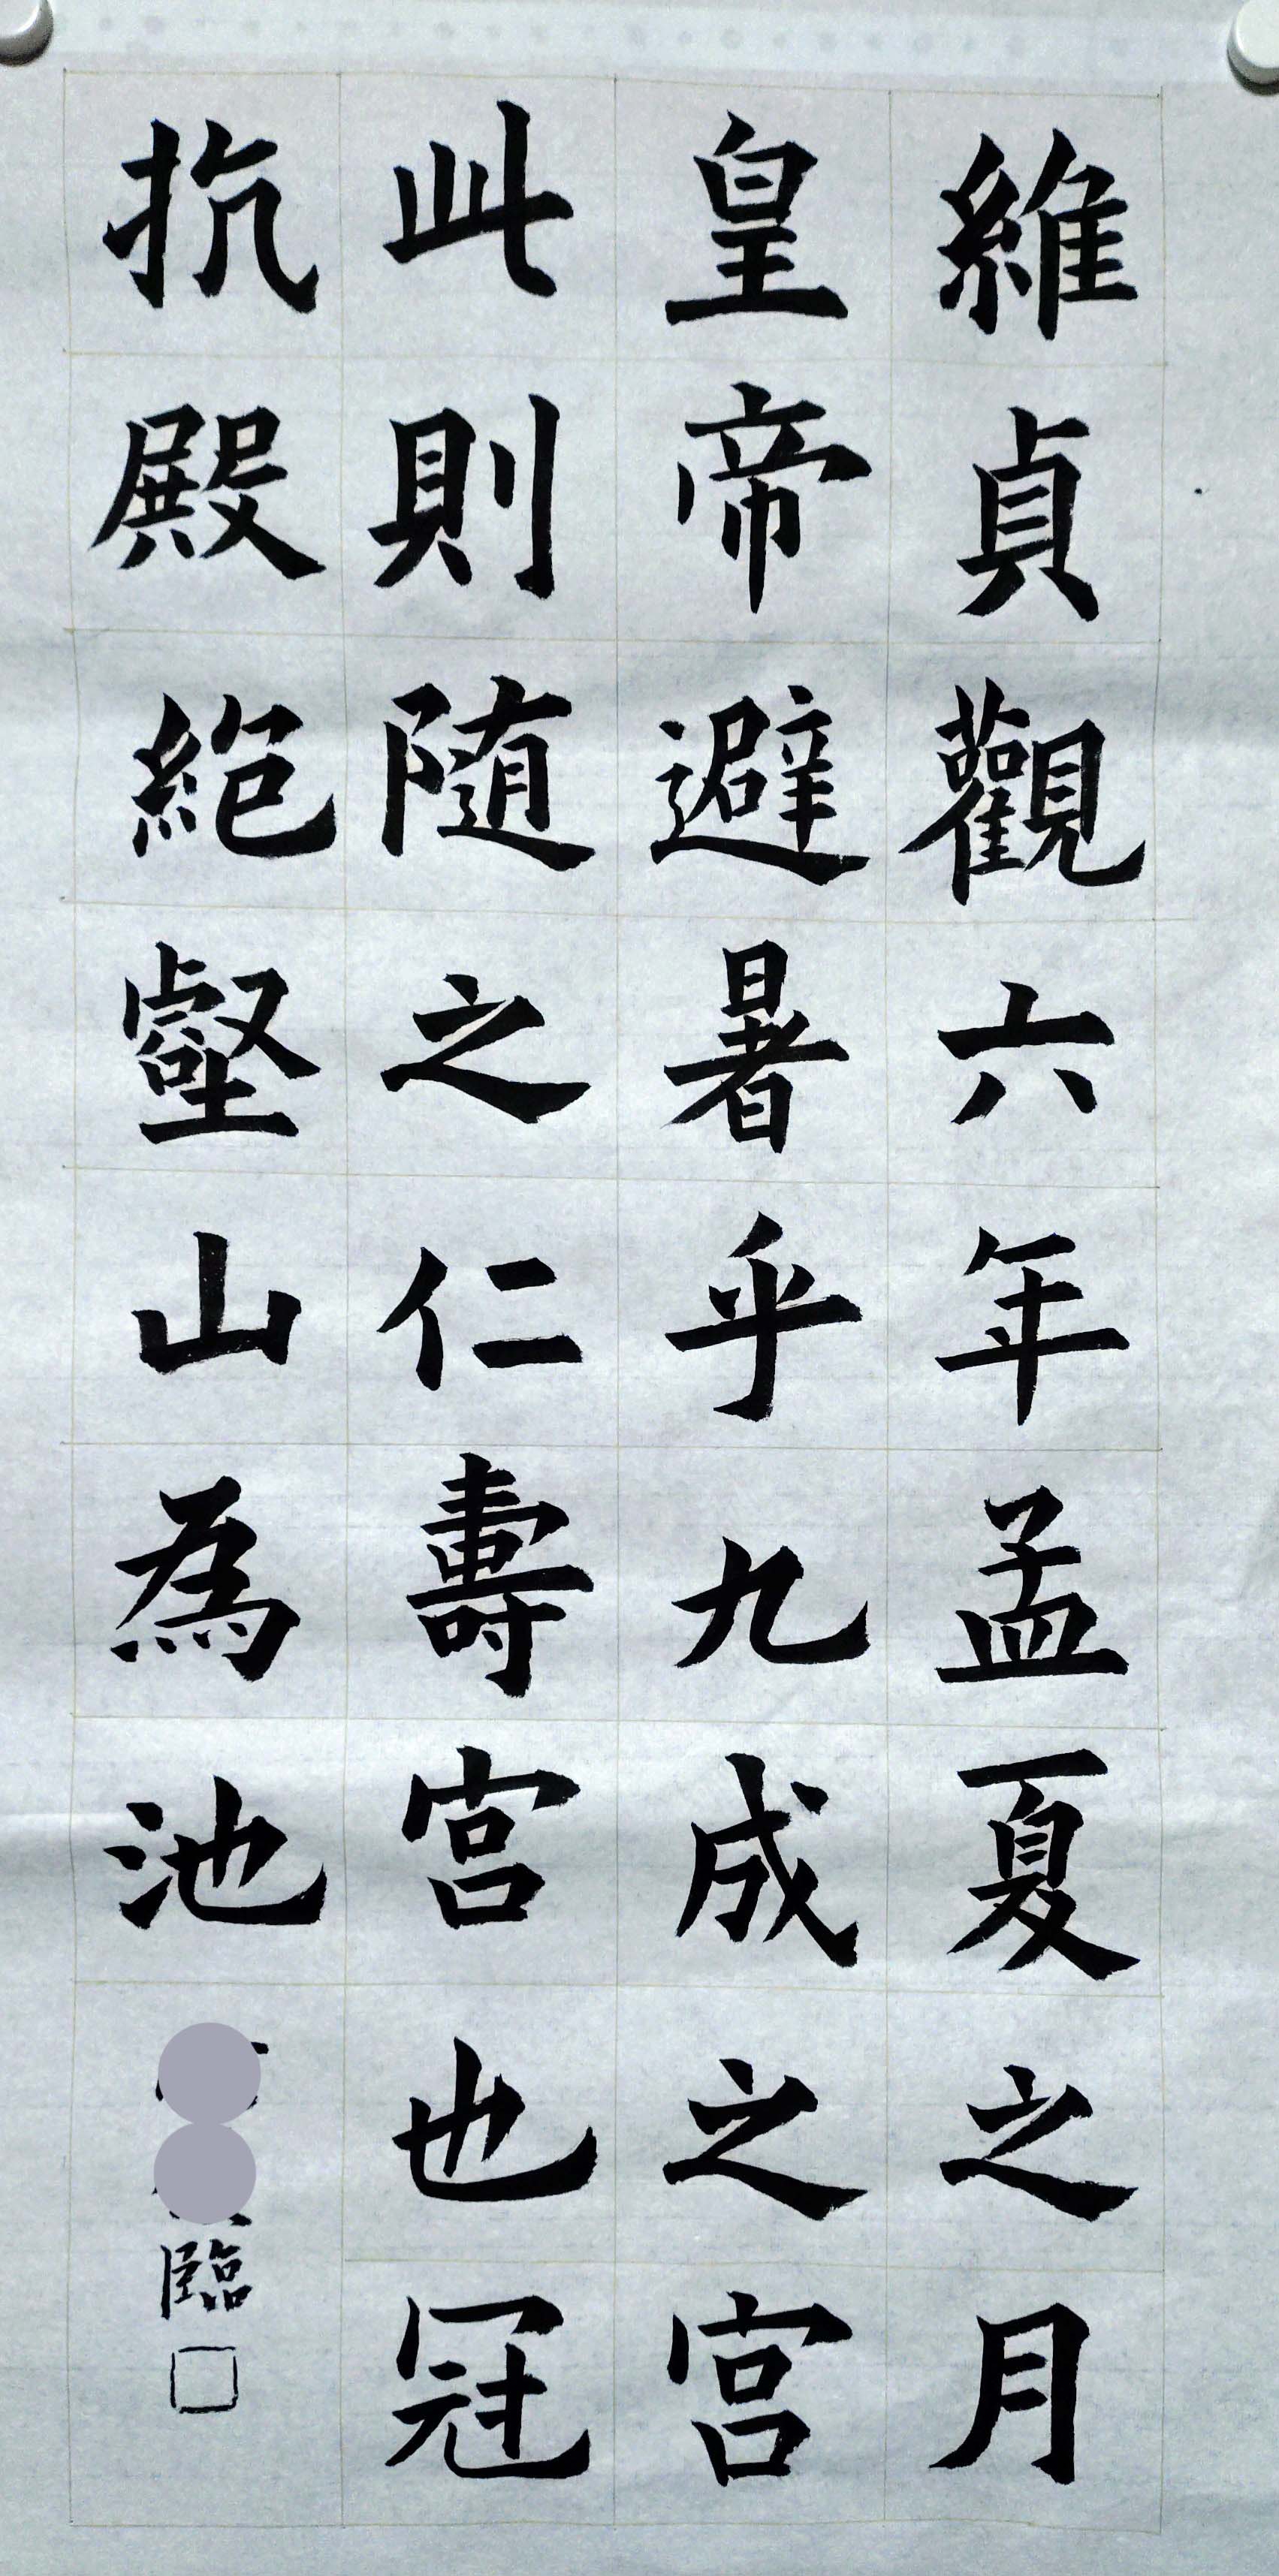 維貞觀六年孟夏之月
皇帝避暑乎九成之宮
此則随之仁壽宮也冠
抗殿絶壑山為池
臨